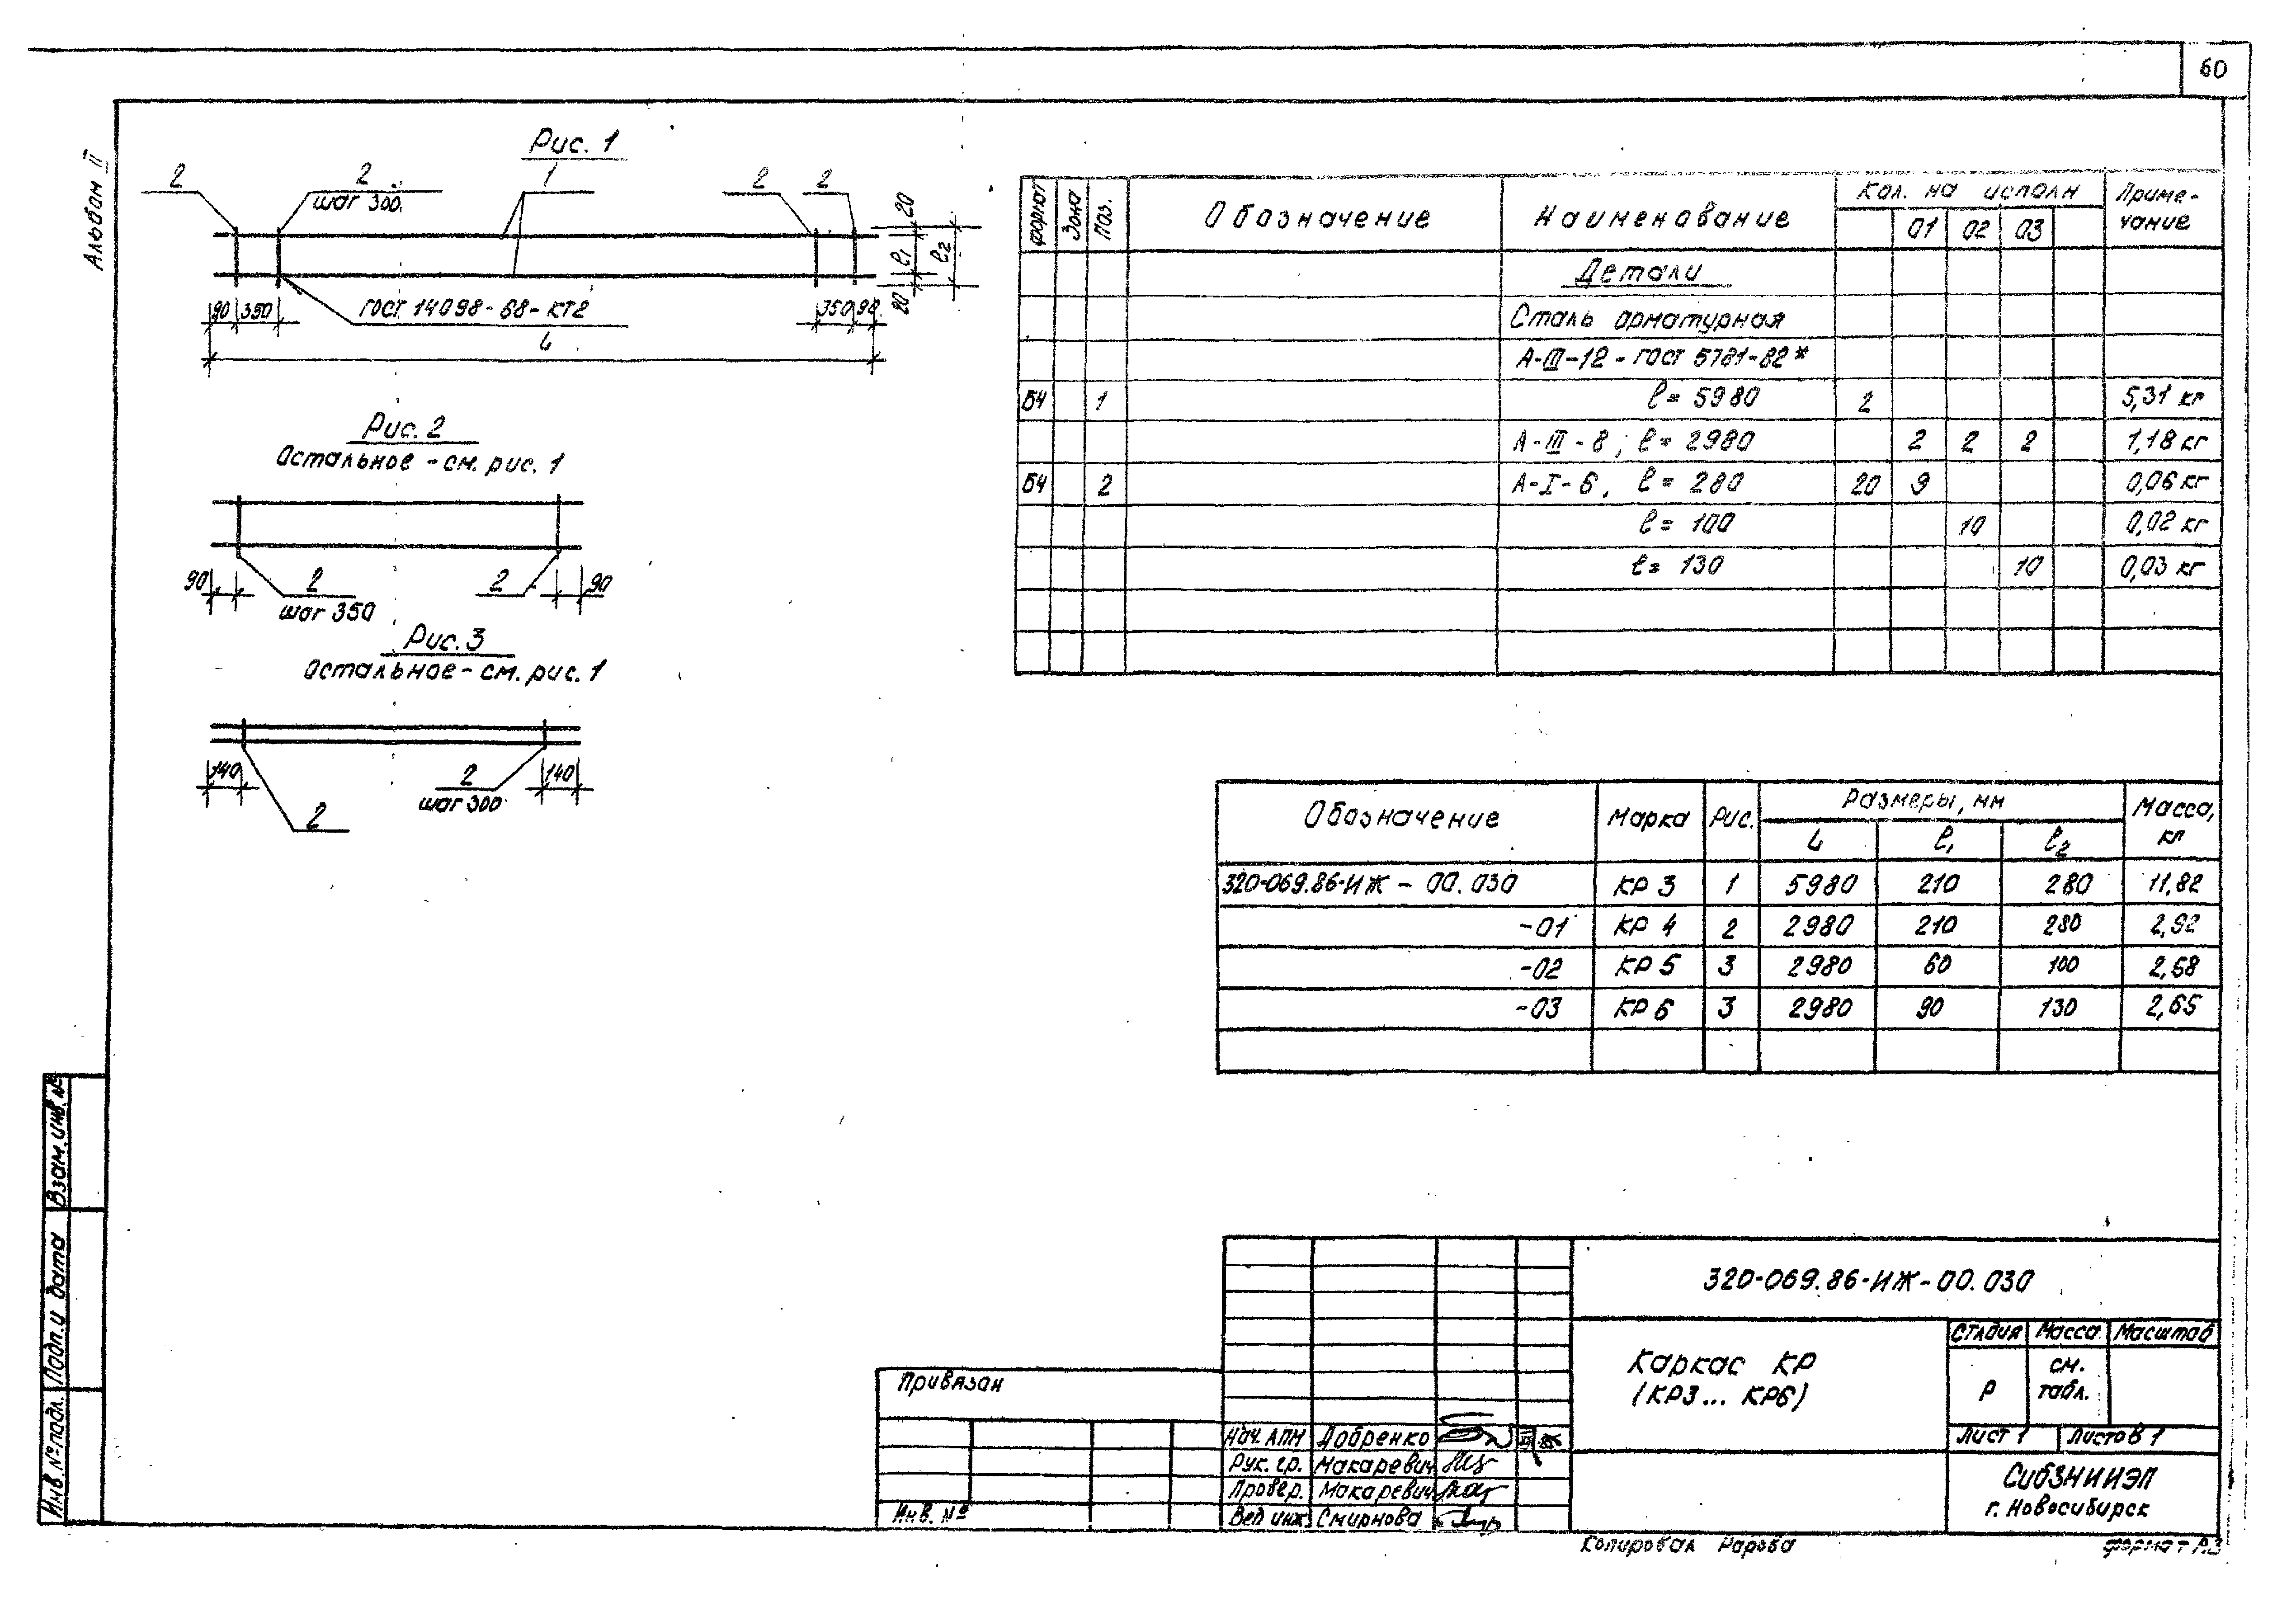 60
Альбом II
Рис. 1
2
2
шаг 300
1
2
2
20
l1
l2
20
90 350
ГОСТ 14098-68-КТ2
350 90
L
Рис. 2
Остальное - см. рис. 1
90
2
шаг 350
2
90
Рис. 3
Остальное - см. рис. 1
140
2
2
шаг 300
140
Формат Зона Поз. Обозначение Наименование Кол. на исполн Приме-
чание
01 02 03
Детали
Сталь арматурная
А-III-12-ГОСТ 5781-82*
БЧ 1 l= 5980 2 5,31 кг
А-III-8; l= 2980 2 2 2 1,18 кг
БЧ 2 А-I-6, l= 280 20 9 0,06 кг
l= 100 10 0,02 кг
l= 130 10 0,03 кг
Обозначение Марка Рис. Размеры, мм Масса,
кг
L l1 l2
320-069.86-ИЖ-00.030 КР3 1 5980 210 280 11,82
-01 КР4 2 2980 210 280 2,92
-02 КР5 3 2980 60 100 2,58
-03 КР6 3 2980 90 130 2,65
Взам. инв. №
Подп. и дата
Инв. № подл.
Привязан
Инв. №
320-069.86-ИЖ-00.030
Каркас КР
(КР3... КР6)
Стадия Масса Масштаб
Р см.
табл.
Лист 1 Листов 1
Нач. АПМ Добренко
Рук. гр. Макаревич
Провер. Макаревич
Вед инж. Смирнова
СибЗНИИЭП
г. Новосибирск
Копировал Рарова
формат А3